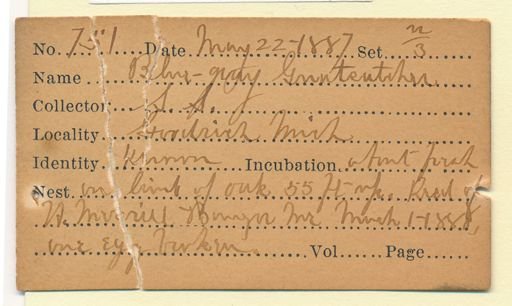 No. 751 Date May 22-1887 Set n/3
Name Blue-gray Gnatcatcher
Collector
Locality Goodrich Mich
Identity Known Incubation about fresh
Nest on limb of oak 55 ft up. Recd of
H. Merrill Bangor Me. March 1-1888,
one egg broken. Vol Page